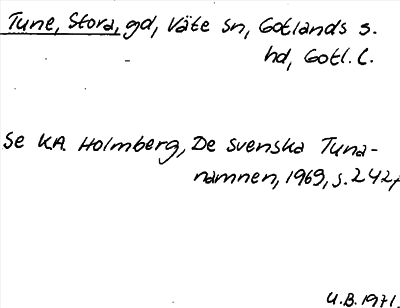 Tune, Stora, gd, Väte sn, Gotlands s.
hd, Gotl. l.
Se K.A. Holmberg, De svenska Tuna-
namnen, 1969, s. 242f
U.B. 1971.